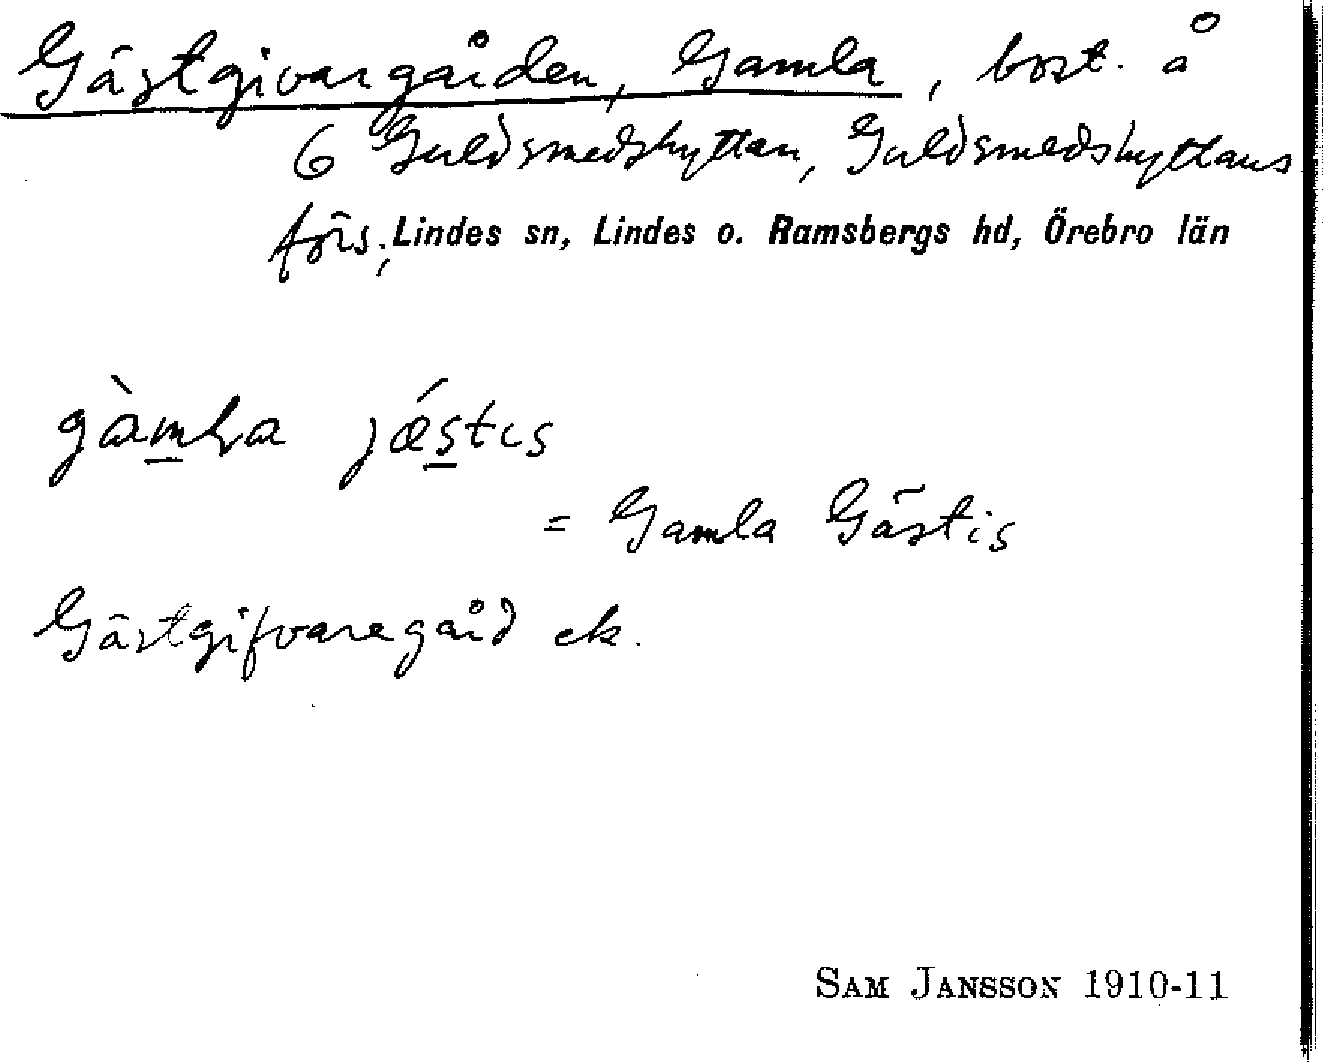 Gästgivargården, Gamla, bost. å
6 Guldsmedshyttan, Guldsmedshyttans
förs; Lindes sn, Lindes o. Ramsbergs hd, Örebro län
gàm̲ɫa jǽs̲tɩs
= Gamla Gästis
Gästgifvaregård ek.
SAM JANSSON 1910-11